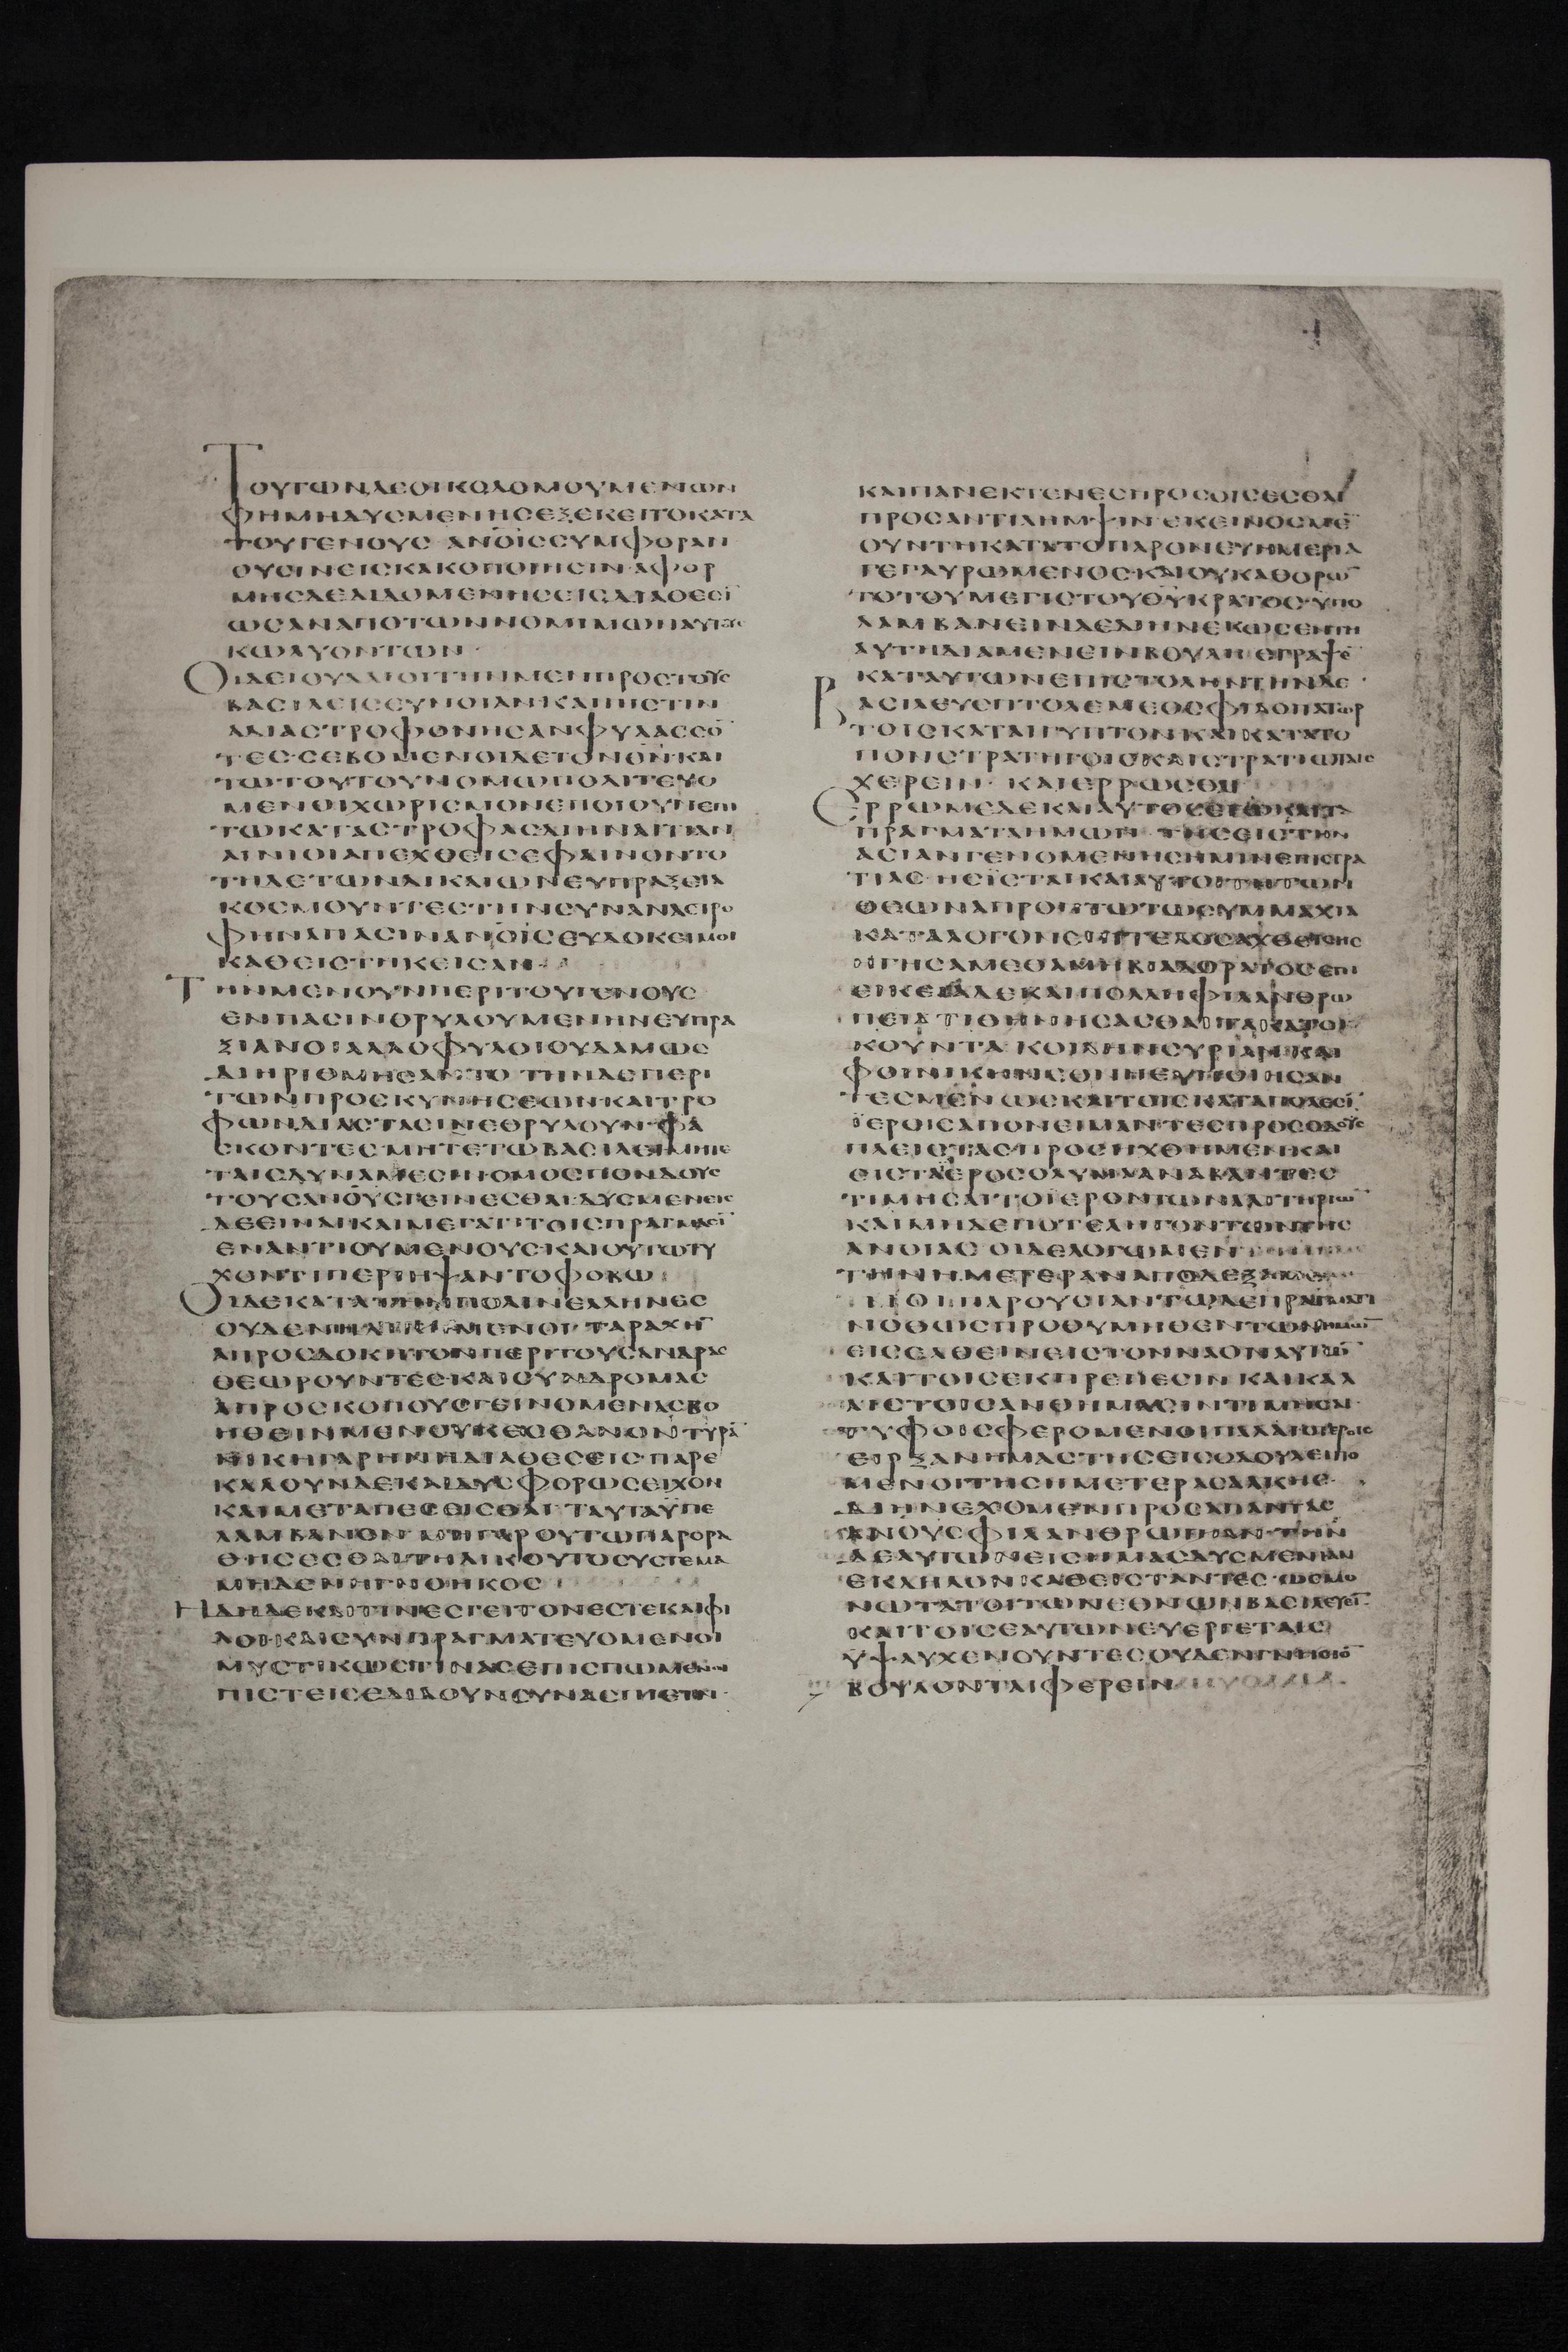 ΤΟΥΤΩΝΔΕΟΙΚΟΔΟΜΟΥΜΕΝΩΝ
ΦΗΜΗΔΥΣΜΕΝΗΣΕΞΕΚΕΙΤΟΚΑΤΑ
ΤΟΥΓΕΝΟΥΣ ΑΝΟΙΣΣΥΜΦΟΡΑΝ
ΟΥΣΙΝΕΙΣΚΑΚΟΠΟΙΗΣΙΝ ΑΦΟΡ
ΜΗΣΔΕΔΙΔΟΜΕΝΗΣΕΙΣΔΙΑΘΕΣΙ̅
ΩΣΑΝΑΠΟΤΩΝΝΟΜΙΜΩΝΑΥΤΟΥΣ
ΚΩΛΥΟΝΤΩΝ·
ΟΙΔΕΙΟΥΔΑΙΟΙΤΗΝΜΕΝΠΡΟΣΤΟΥΣ
ΒΑΣΙΛΕΙΣΕΥΝΟΙΑΝΚΑΙΠΙΣΤΙΝ
ΑΔΙΑΣΤΡΟΦΟΝΗΣΑΝΦΥΛΑΣΣΟ̅
ΤΕΣ·ΣΕΒΟΜΕΝΟΙΔΕΤΟΝΘΝΚΑΙ
ΤΩΤΟΥΤΟΥΝΟΜΩΠΟΛΙΤΕΥΟ
ΜΕΝΟΙΧΩΡΙΣΜΟΝΕΠΟΙΟΥΝΕΠΙ
ΤΩΚΑΤΑΣΤΡΟΦΑΣΔΙΗΝΑΙΤΙΑΝ
ΑΙΝΙΟΙΑΠΕΧΘΕΙΣΕΦΑΙΝΟΝΤΟ
ΤΗΔΕΤΩΝΔΙΚΑΙΩΝΕΥΠΡΑΞΕΙΑ
ΚΟΣΜΟΥΝΤΕΣΤΗΝΣΥΝΑΝΑΣΤΡΟ
ΦΗΝΑΠΑΣΙΝΑΝΟΙΣΕΥΔΟΚΕΙΜΟΙ
ΚΑΘΕΙΣΤΗΚΕΙΣΑΝ·
ΤΗΝΜΕΝΟΥΝΠΕΡΙΤΟΥΓΕΝΟΥΣ
ΕΝΠΑΣΙΝΘΡΥΛΟΥΜΕΝΗΝΕΥΠΡΑ
ΞΙΑΝΟΙΑΛΛΟΦΥΛΟΙΟΥΔΑΜΩΣ
ΔΙΗΡΙΘΜΗΣΑΝΤΟ ΤΗΝΔΕΠΕΡΙ
ΤΩΝΠΡΟΣΚΥΝΗΣΕΩΝΚΑΙΤΡΟ
ΦΩΝΔΙΑΣΤΑΣΙΝΕΘΡΥΛΟΥΝ·ΦΑ
ΣΚΟΝΤΕΣΜΗΤΕΤΩΒΑΣΙΛΕΙΜΗΤΕ
ΤΑΙΣΔΥΝΑΜΕΣΙΝΟΜΟΣΠΟΝΔΟΥΣ
ΤΟΥΣΑΝΟΥΣΓΕΙΝΕΣΘΑΙ·ΔΥΣΜΕΝΕΙΣ
ΔΕΕΙΝΑΙΚΑΙΜΕΓΑΤΙΤΟΙΣΠΡΑΓΜΑΣΙ̅
ΕΝΑΝΤΙΟΥΜΕΝΟΥΣ·ΚΑΙΟΥΤΩΤΥ
ΧΟΝΤΙΠΕΡΙΗΨΑΝΤΟΦΟΒΩ
ΟΙΔΕΚΑΤΑΤΗΝΠΟΛΙΝΕΛΛΗΝΕΣ
ΟΥΔΕΝΗΔΙΚΗΜΕΝΟΙ ΤΑΡΑΧΗ̅
ΑΠΡΟΣΔΟΚΗΤΟΝΠΕΡΙΤΟΥΣΑΝΔΡΑΣ
ΘΕΩΡΟΥΝΤΕΣ·ΚΑΙΣΥΝΔΡΟΜΑΣ
ΑΠΡΟΣΚΟΠΟΥΣΓΕΙΝΟΜΕΝΑΣΒΟ
ΗΘΕΙΝΜΕΝΟΥΚΕΣΘΑΝΟΝΤΥΡΑ̅
ΝΙΚΗΓΑΡΗΝΗΔΙΑΘΕΣΕΙΣ·ΠΑΡΕ
ΚΑΛΟΥΝΔΕΚΑΙΔΥΣΦΟΡΩΣΕΙΧΟΝ
ΚΑΙΜΕΤΑΠΕΣΕΙΣΘΑΙ ΤΑΥΤΑΥΠΕ
ΛΑΜΒΑΝΟΝ ΜΗΓΑΡΟΥΤΩΠΑΡΟΡΑ
ΘΗΣΕΣΘΑΙΤΗΛΙΚΟΥΤΟΣΥΣΤΕΜΑ
ΜΗΔΕΝΗΓΝΟΗΚΟΣ
ΗΔΗΔΕΚΑΙΤΙΝΕΣΓΕΙΤΟΝΕΣΤΕΚΑΙΦΙ
ΛΟΙΚΑΙΣΥΝΠΡΑΓΜΑΤΕΥΟΜΕΝΟΙ
ΜΥΣΤΙΚΩΣΤΙΝΑΣΕΠΙΣΠΩΜΕΝΟΙ
ΠΙΣΤΕΙΣΕΔΙΔΟΥΝΣΥΝΑΣΠΙΕΙΝ
ΚΑΙΠΑΝΕΚΤΕΝΕΣΠΡΟΣΟΙΣΕΣΘΑΙ
ΠΡΟΣΑΝΤΙΛΗΜΨΙΝ ΕΚΕΙΝΟΣΜΕ̅
ΟΥΝΤΗΚΑΤΑΤΟΠΑΡΟΝΕΥΗΜΕΡΙΑ
ΓΕΓΑΥΡΩΜΕΝΟΣ·ΚΑΙΟΥΚΑΘΟΡΩ̅
ΤΟΤΟΥΜΕΓΙΣΤΟΥΘΥΚΡΑΤΟΣ·ΥΠΟ
ΛΑΜΒΑΝΕΙΝΔΕΔΙΗΝΕΚΩΣΕΝΤΗ
ΑΥΤΗΔΙΑΜΕΝΕΙΝΒΟΥΛΗ ΕΓΡΑΨΕ̅
ΚΑΤΑΥΤΩΝΕΠΙΣΤΟΛΗΝΤΗΝΔΕ·
ΒΑΣΙΛΕΥΣΠΤΟΛΕΜΕΟΣΦΙΛΟΠΑΤΩΡ
ΤΟΙΣΚΑΤΑΙΓΥΠΤΟΝΚΑΙΚΑΤΑΤΟ
ΠΟΝΣΤΡΑΤΗΓΟΙΣΚΑΙΣΤΡΑΤΙΩΤΑΙΣ
ΧΕΡΕΙΝ· ΚΑΙΕΡΡΩΣΘΑΙ
ΕΡΡΩΜΕΔΕΚΑΙΑΥΤΟΣΕΓΩΚΑΙΤΑ
ΠΡΑΓΜΑΤΑΗΜΩΝ ΤΗΣΕΙΣΤΗΝ
ΑΣΙΑΝΓΕΝΟΜΕΝΗΣΗΜΙΝΕΠΙΣΤΡΑ
ΤΙΑΣ ΗΣΙΣΤΑΙΚΑΙΑΥΤΟΙΤΗΤΩΝ
ΘΕΩΝΑΠΡΟΠΤΩΤΩΣΥΜΜΑΧΙΑ
ΚΑΤΑΛΟΓΟΝΕΠΙΤΕΛΟΣΑΧΘΕΙΣΗΣ
ΗΓΗΣΑΜΕΘΑΜΗΒΙΑΔΟΡΑΤΟΣΕΠΙ
ΕΙΚΕΙΑΔΕΚΑΙΠΟΛΛΗΦΙΛΑΝΘΡΩ
ΠΕΙΑΤΙΘΗΝΗΣΑΣΘΑΙΤΑΚΑΤΟΙ
ΚΟΥΝΤΑ ΚΟΙΛΗΝΣΥΡΙΑΝΚΑΙ
ΦΟΙΝΙΚΗΝΕΘΝΗΕΥΠΟΙΗΣΑΝ
ΤΕΣΜΕΝ ΩΣΚΑΙΤΟΙΣΚΑΤΑΠΟΛΕΣΙ̅
ΙΕΡΟΙΣΑΠΟΝΕΙΜΑΝΤΕΣΠΡΟΣΟΔΟΥΣ
ΠΛΕΙΣΤΑΣ·ΠΡΟΣΗΧΘΗΜΕΝΚΑΙ
ΕΙΣΤΑΙΕΡΟΣΟΛΥΜΑΑΝΑΒΑΝΤΕΣ
ΤΙΜΗΣΑΙΤΟΙΕΡΟΝΤΩΝΑΛΙΤΗΡΙΩ̅
ΚΑΙΜΗΔΕΠΟΤΕΛΗΓΟΝΤΩΝΤΗΣ
ΑΝΟΙΑΣ ΟΙΔΕΛΟΓΩΜΕΝ
ΤΗΝΗΜΕΤΕΡΑΝΑΠΟΔΕΞΑΜΕΝΟΙ
ΠΑΡΟΥΣΙΑΝΤΩΔΕΠΡΑΓΜΑΤΙ
ΝΟΘΩΣΠΡΟΘΥΜΗΘΕΝΤΩΝΗΜΩ̅
ΕΙΣΕΛΘΕΙΝΕΙΣΤΟΝΝΑΟΝΑΥΤΩ̅
ΚΑΙΤΟΙΣΕΚΠΡΕΠΕΣΙΝ ΚΑΙΚΑΛ
ΛΙΣΤΟΙΣΑΝΘΗΜΑΣΙΝΤΙΜΗΣΑΙ
ΤΥΦΟΙΣΦΕΡΟΜΕΝΟΙΠΑΛΑΙΟΤΕΡΟΙΣ
ΕΙΡΞΑΝΗΜΑΣΤΗΣΕΙΣΟΔΟΥΛΕΙΠΟ
ΜΕΝΟΙΤΗΣΗΜΕΤΕΡΑΣΑΛΚΗΣ·
ΔΙΗΝΕΧΟΜΕΝΠΡΟΣΑΠΑΝΤΑΣ
ΑΝΟΥΣΦΙΛΑΝΘΡΩΠΙΑΝ·ΤΗΝ
ΔΕΑΥΤΩΝΕΙΣΗΜΑΣΔΥΣΜΕΝΙΑΝ
ΕΚΔΗΛΟΝΚΑΘΕΙΣΤΑΝΤΕΣ·ΩΣΜΟ
ΝΩΤΑΤΟΙΤΩΝΕΘΝΩΝΒΑΣΙΛΕΥΣΙ̅
ΚΑΙΤΟΙΣΕΑΥΤΩΝΕΥΕΡΓΕΤΑΙΣ
ΥΨΑΥΧΕΝΟΥΝΤΕΣΟΥΔΕΝΓΝΗΣΙΟ̅
ΒΟΥΛΟΝΤΑΙΦΕΡΕΙΝ